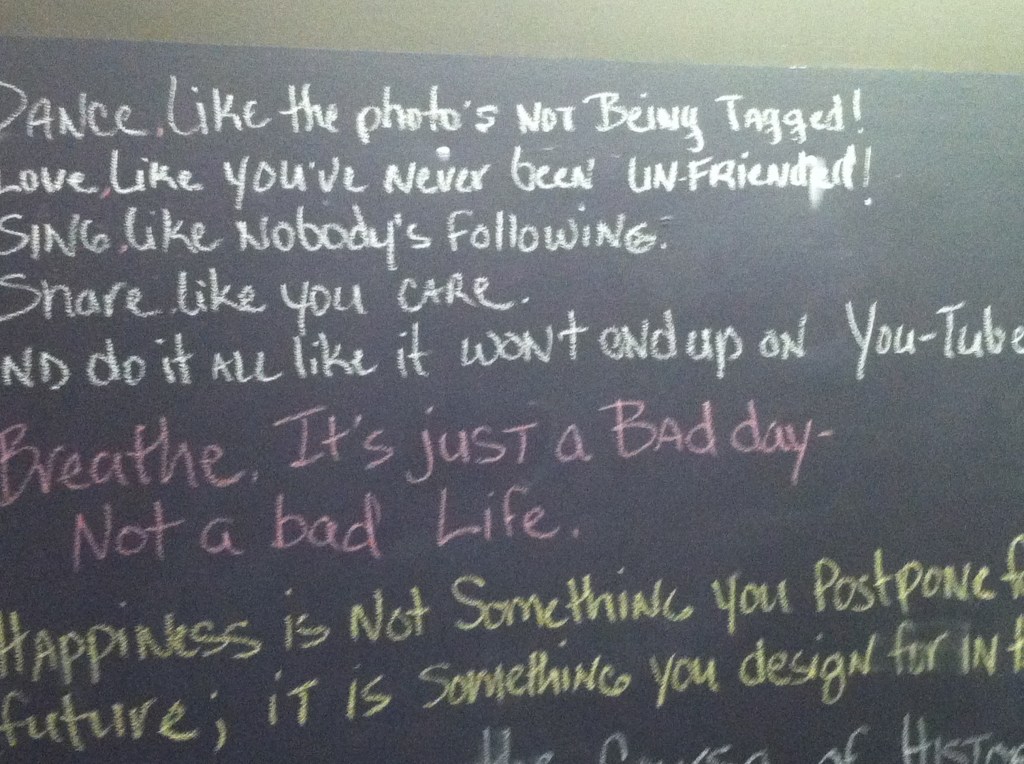 DANCE, Like the photo's NOT Being Tagged!
Love, Like you've Never been UN-FRIENDED!
SING, like Nobody's Following.
Share like you CARE.
AND do it ALL like it WON't end up ON You-Tube
Breathe. It's just a BAD day-
Not a bad Life.
HAppiness is Not Something you Postpone
future; iT is something you design for IN
the Course of HISTO